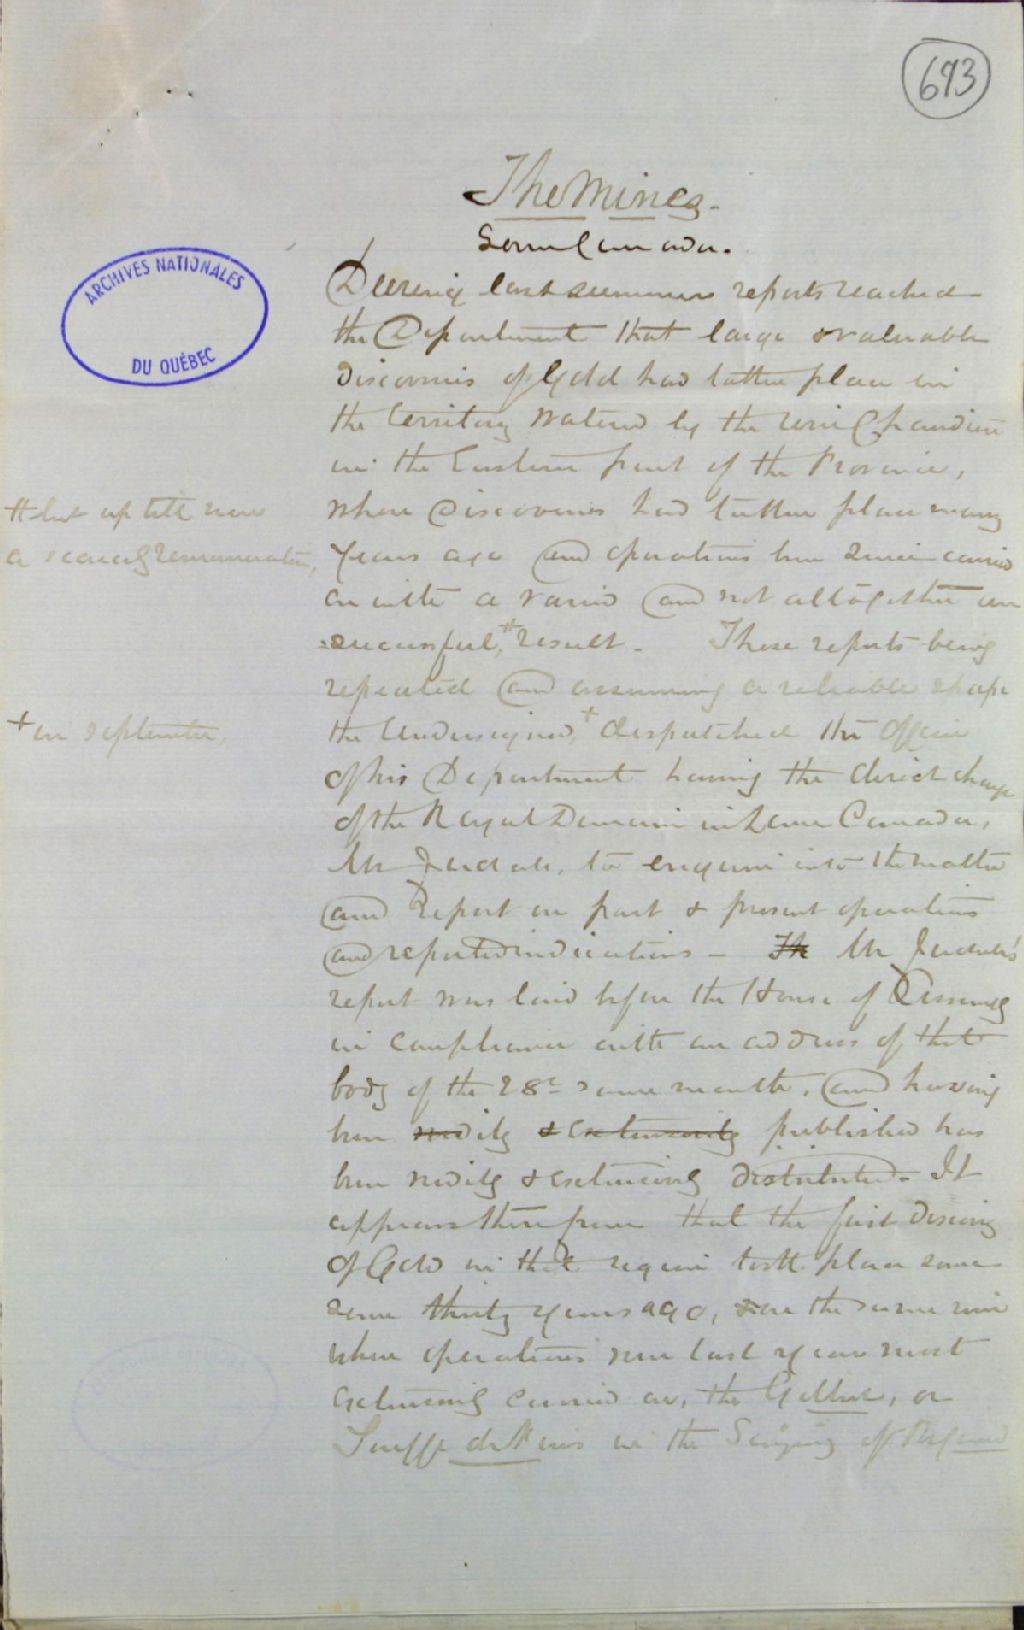 693
The Mines.
Lower Canada.
ARCHIVES NATIONALES
DU QUÉBEC
During last summer reports reached
the Department that large & valuable
Discoveries of Gold had taken place in
the territory watered by the river Chaudière
in the Eastern part of the Province,
where Discoveries had taken place many
# but up till now
a scarcely remunerative,
years ago and operations been since carried
on with a varied and not altogether un
successful, # result. These reports being
repeated and assuming a reliable shape
+ in September,
the Undersigned, + despatched the Officer
of his Department having the direct charge
of the Royal Domain in Lower Canada,
Mr Judah, to enquire into the matter
and Report on past & present operations
and reported indications – Th Mr Judah's
report was laid before the House of Assembly
in compliance with an address of that
body of the 28th same month, and having
been widely & extensively published has
been widely & extensively distributed. It
appears therefrom that the first discovery
of Gold in that region took place some
some thirty years ago, & on the same river
where operations were last year most
extensively carried on, the Gilbert, or
Touffe des Pins in the Seigniory of Rigaud